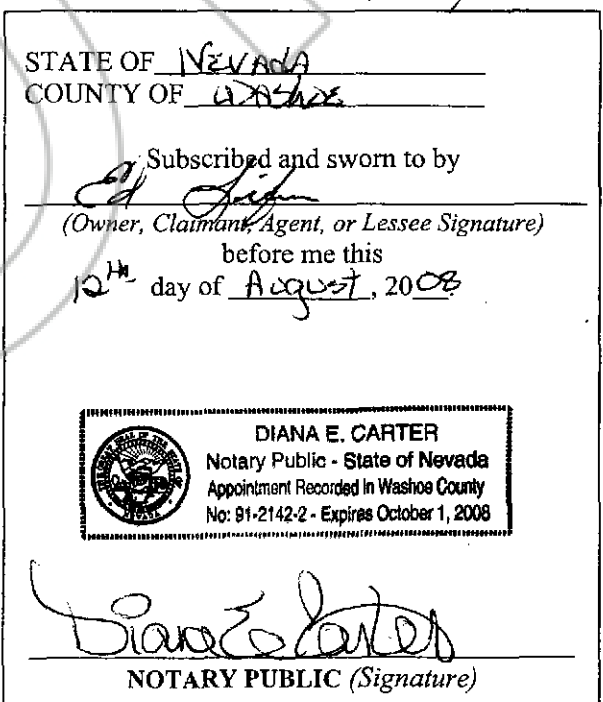 STATE OF NEVADA
COUNTY OF WASHOE
Subscribed and sworn to by
Ed
(Owner, Claimant, Agent, or Lessee Signature)
before me this
12th day of August, 2008
DIANA E. CARTER
Notary Public - State of Nevada
Appointment Recorded in Washoe County
No: 91-2142-2 - Expires October 1, 2008
Diana E Carter
NOTARY PUBLIC (Signature)